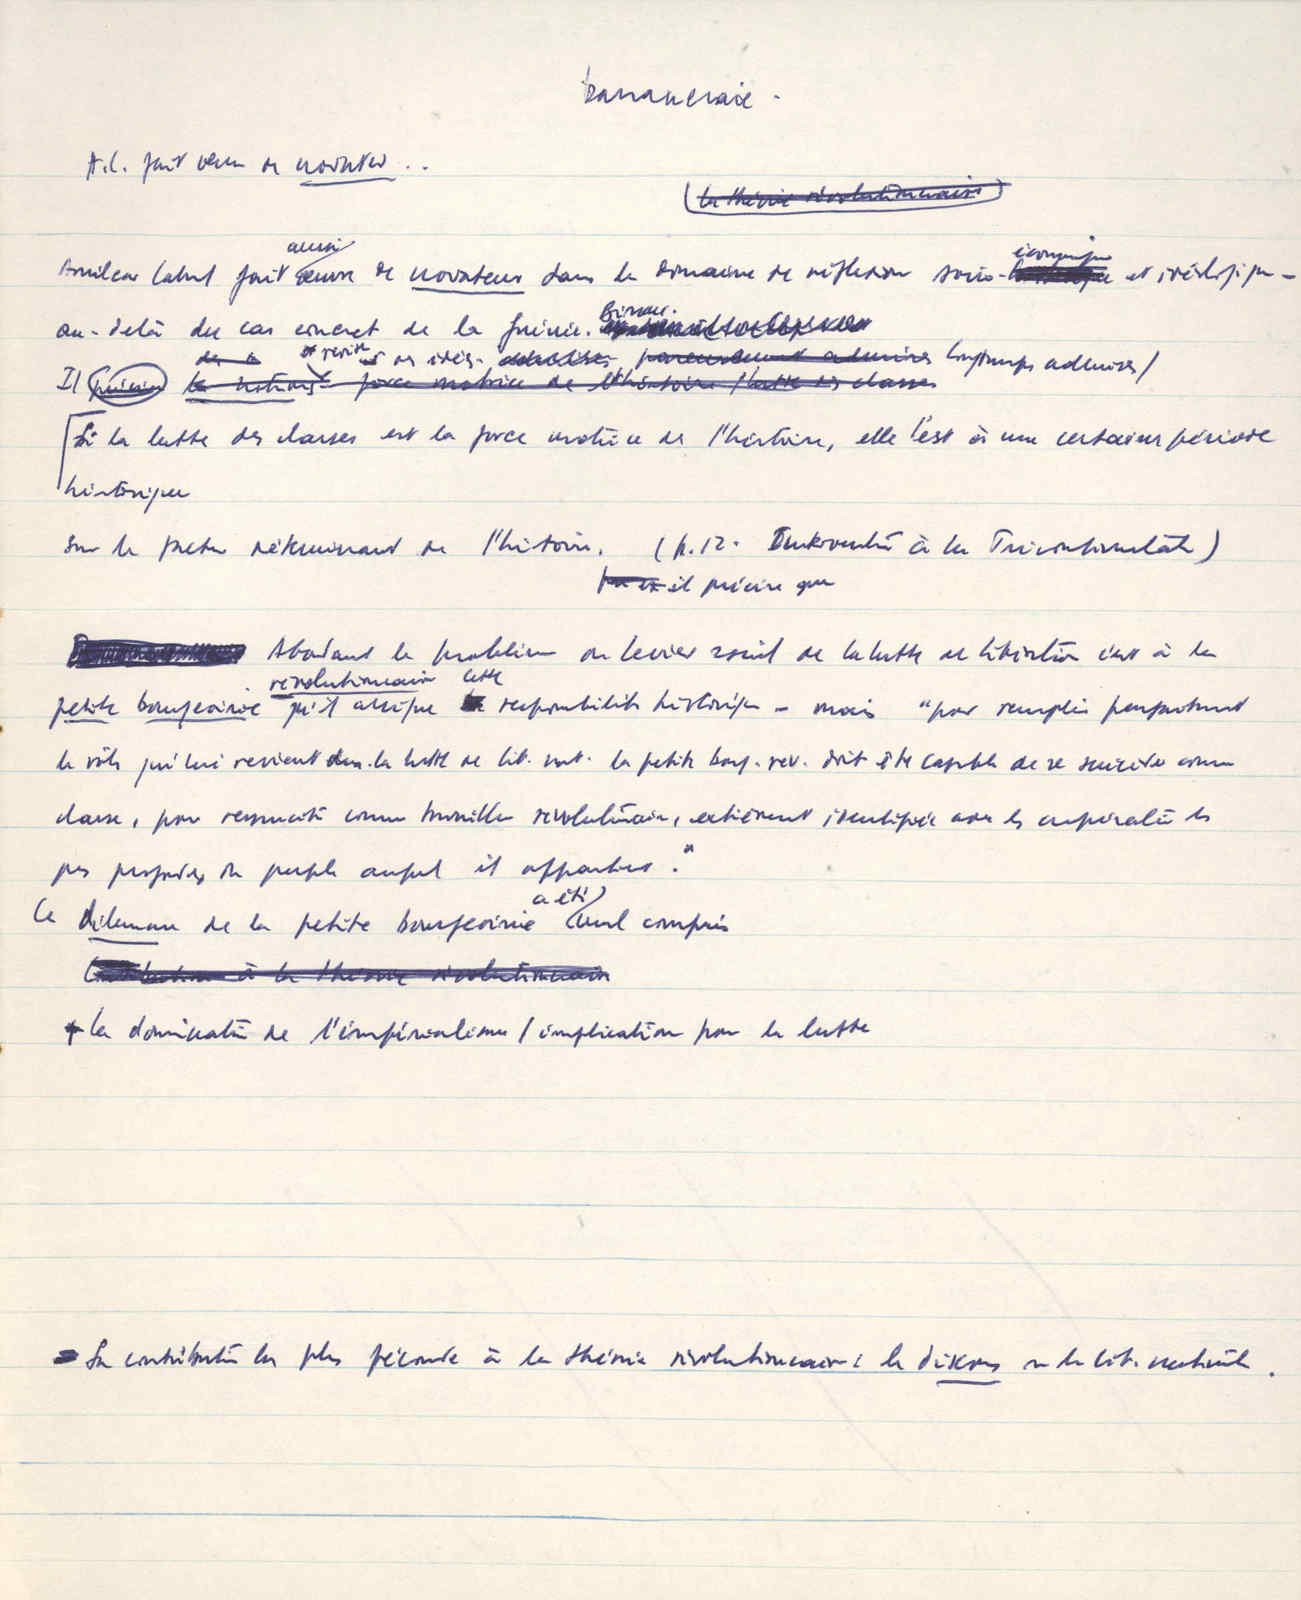 bananeraie.
A.C. fait œuvre de novateur ..
la théorie révolutionnaire
aussi
économique
Amilcar Cabral fait œuvre de novateur dans le domaine de réflexion socio- et idéologique -
Bissau.
au-delà du cas concret de la Guinée.
et révise ses idées longtemps admises/
Il précise la notion force motrice de l'histoire / lutte des classes
Si la lutte des classes est la force motrice de l'histoire, elle l'est à une certaine période
historique
sur le facteur déterminant de l'histoire. (p.12. Intervention à la Tricontinentale)
il précise que
Abordant le problème du levier social de la lutte de libération c'est à la
révolutionnaire cette
petite bourgeoisie qu'il assigne responsabilité historique - mais "pour remplir parfaitement
le rôle qui lui revient dans la lutte de lib. nat. la petite bourg. rev. doit être capable de se suicider comme
classe, pour ressuscité comme travailleur révolutionnaire, entièrement identifiée avec les aspirations les
plus profondes du peuple auquel il appartient."
a été
Ce dilemme de la petite bourgeoisie mal compris
Contribution à la théorie révolutionnaire
+ La domination de l'impérialisme / implication pour la lutte
Sa contribution la plus féconde à la théorie révolutionnaire : le discours sur la lib. nationale.